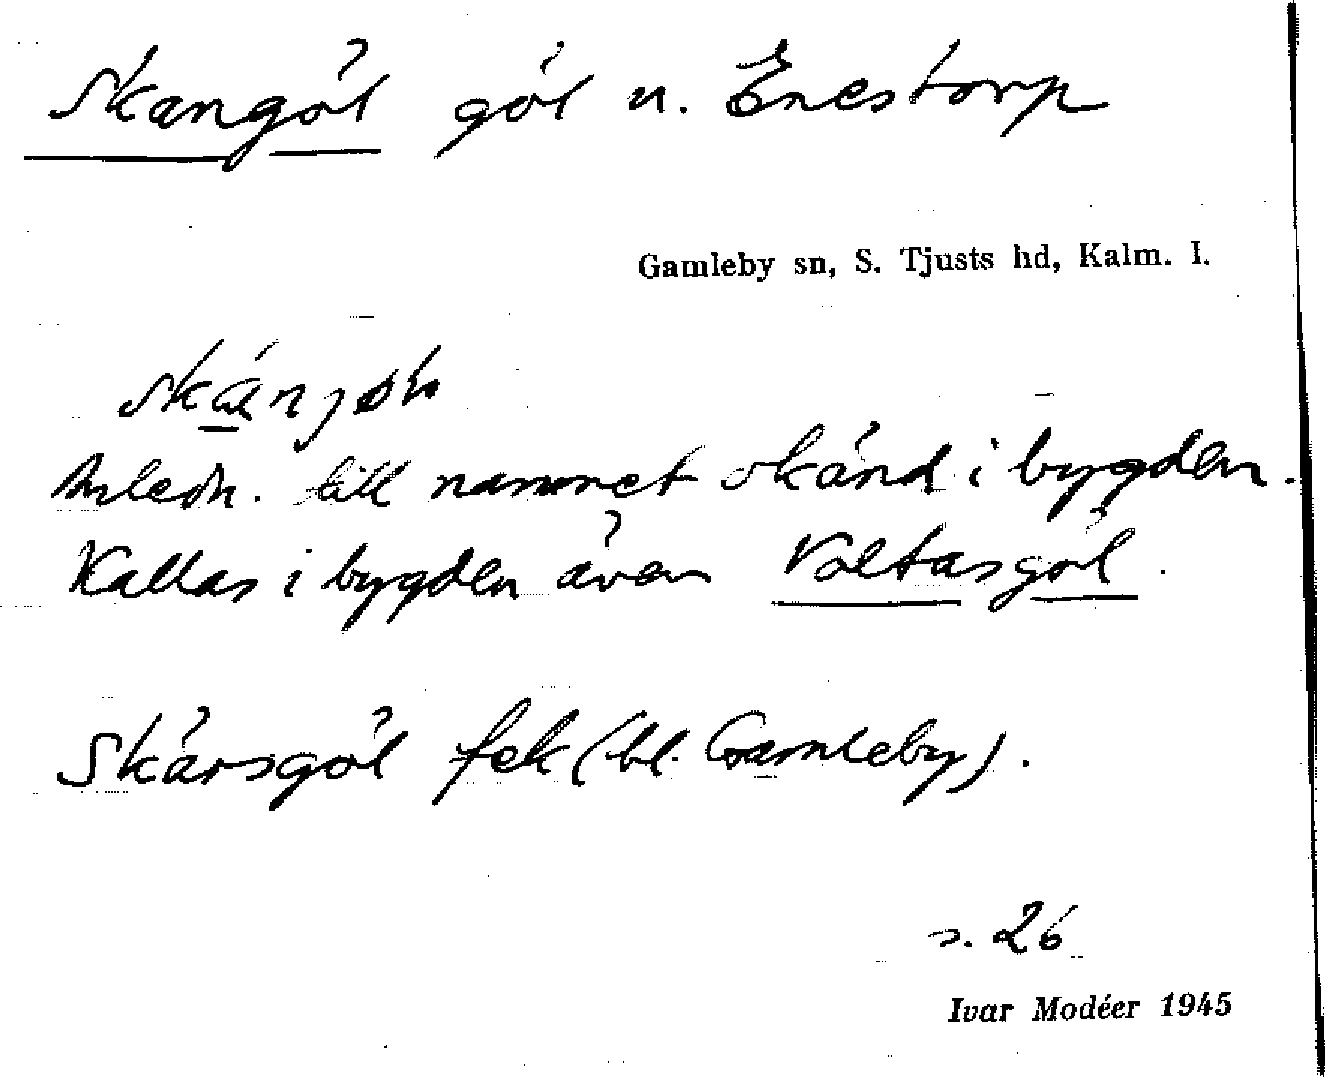 Skangöl göl u. Enestorp
Gamleby sn, S. Tjusts hd, Kalm. l.
Anledn. till namnet okänd i bygden.
Kallas i bygden även Voltasgöl.
Skärsgöl fek (bl. Gamleby).
s. 26
Ivar Modéer 1945